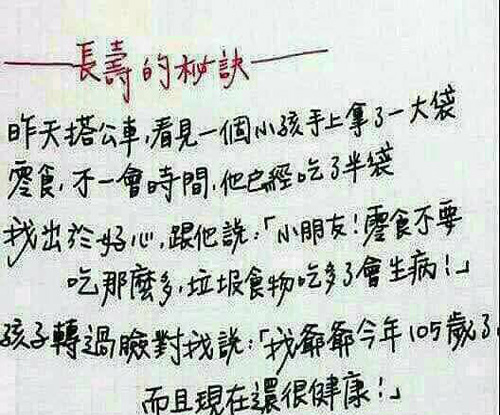 長壽的秘訣
昨天搭公車,看見一個小孩手上拿了一大袋
零食,不一會時間,他已經吃了半袋
我出於好心,跟他說:「小朋友!零食不要
吃那麼多,垃圾食物吃多了會生病!」
孩子轉過臉對我說:「我爺爺今年105歲了,
而且現在還很健康!」